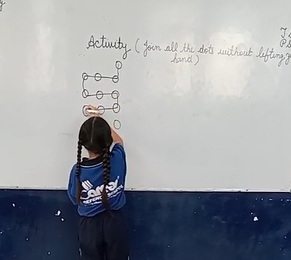 Activity ( Join all the dots without lifting
hand )